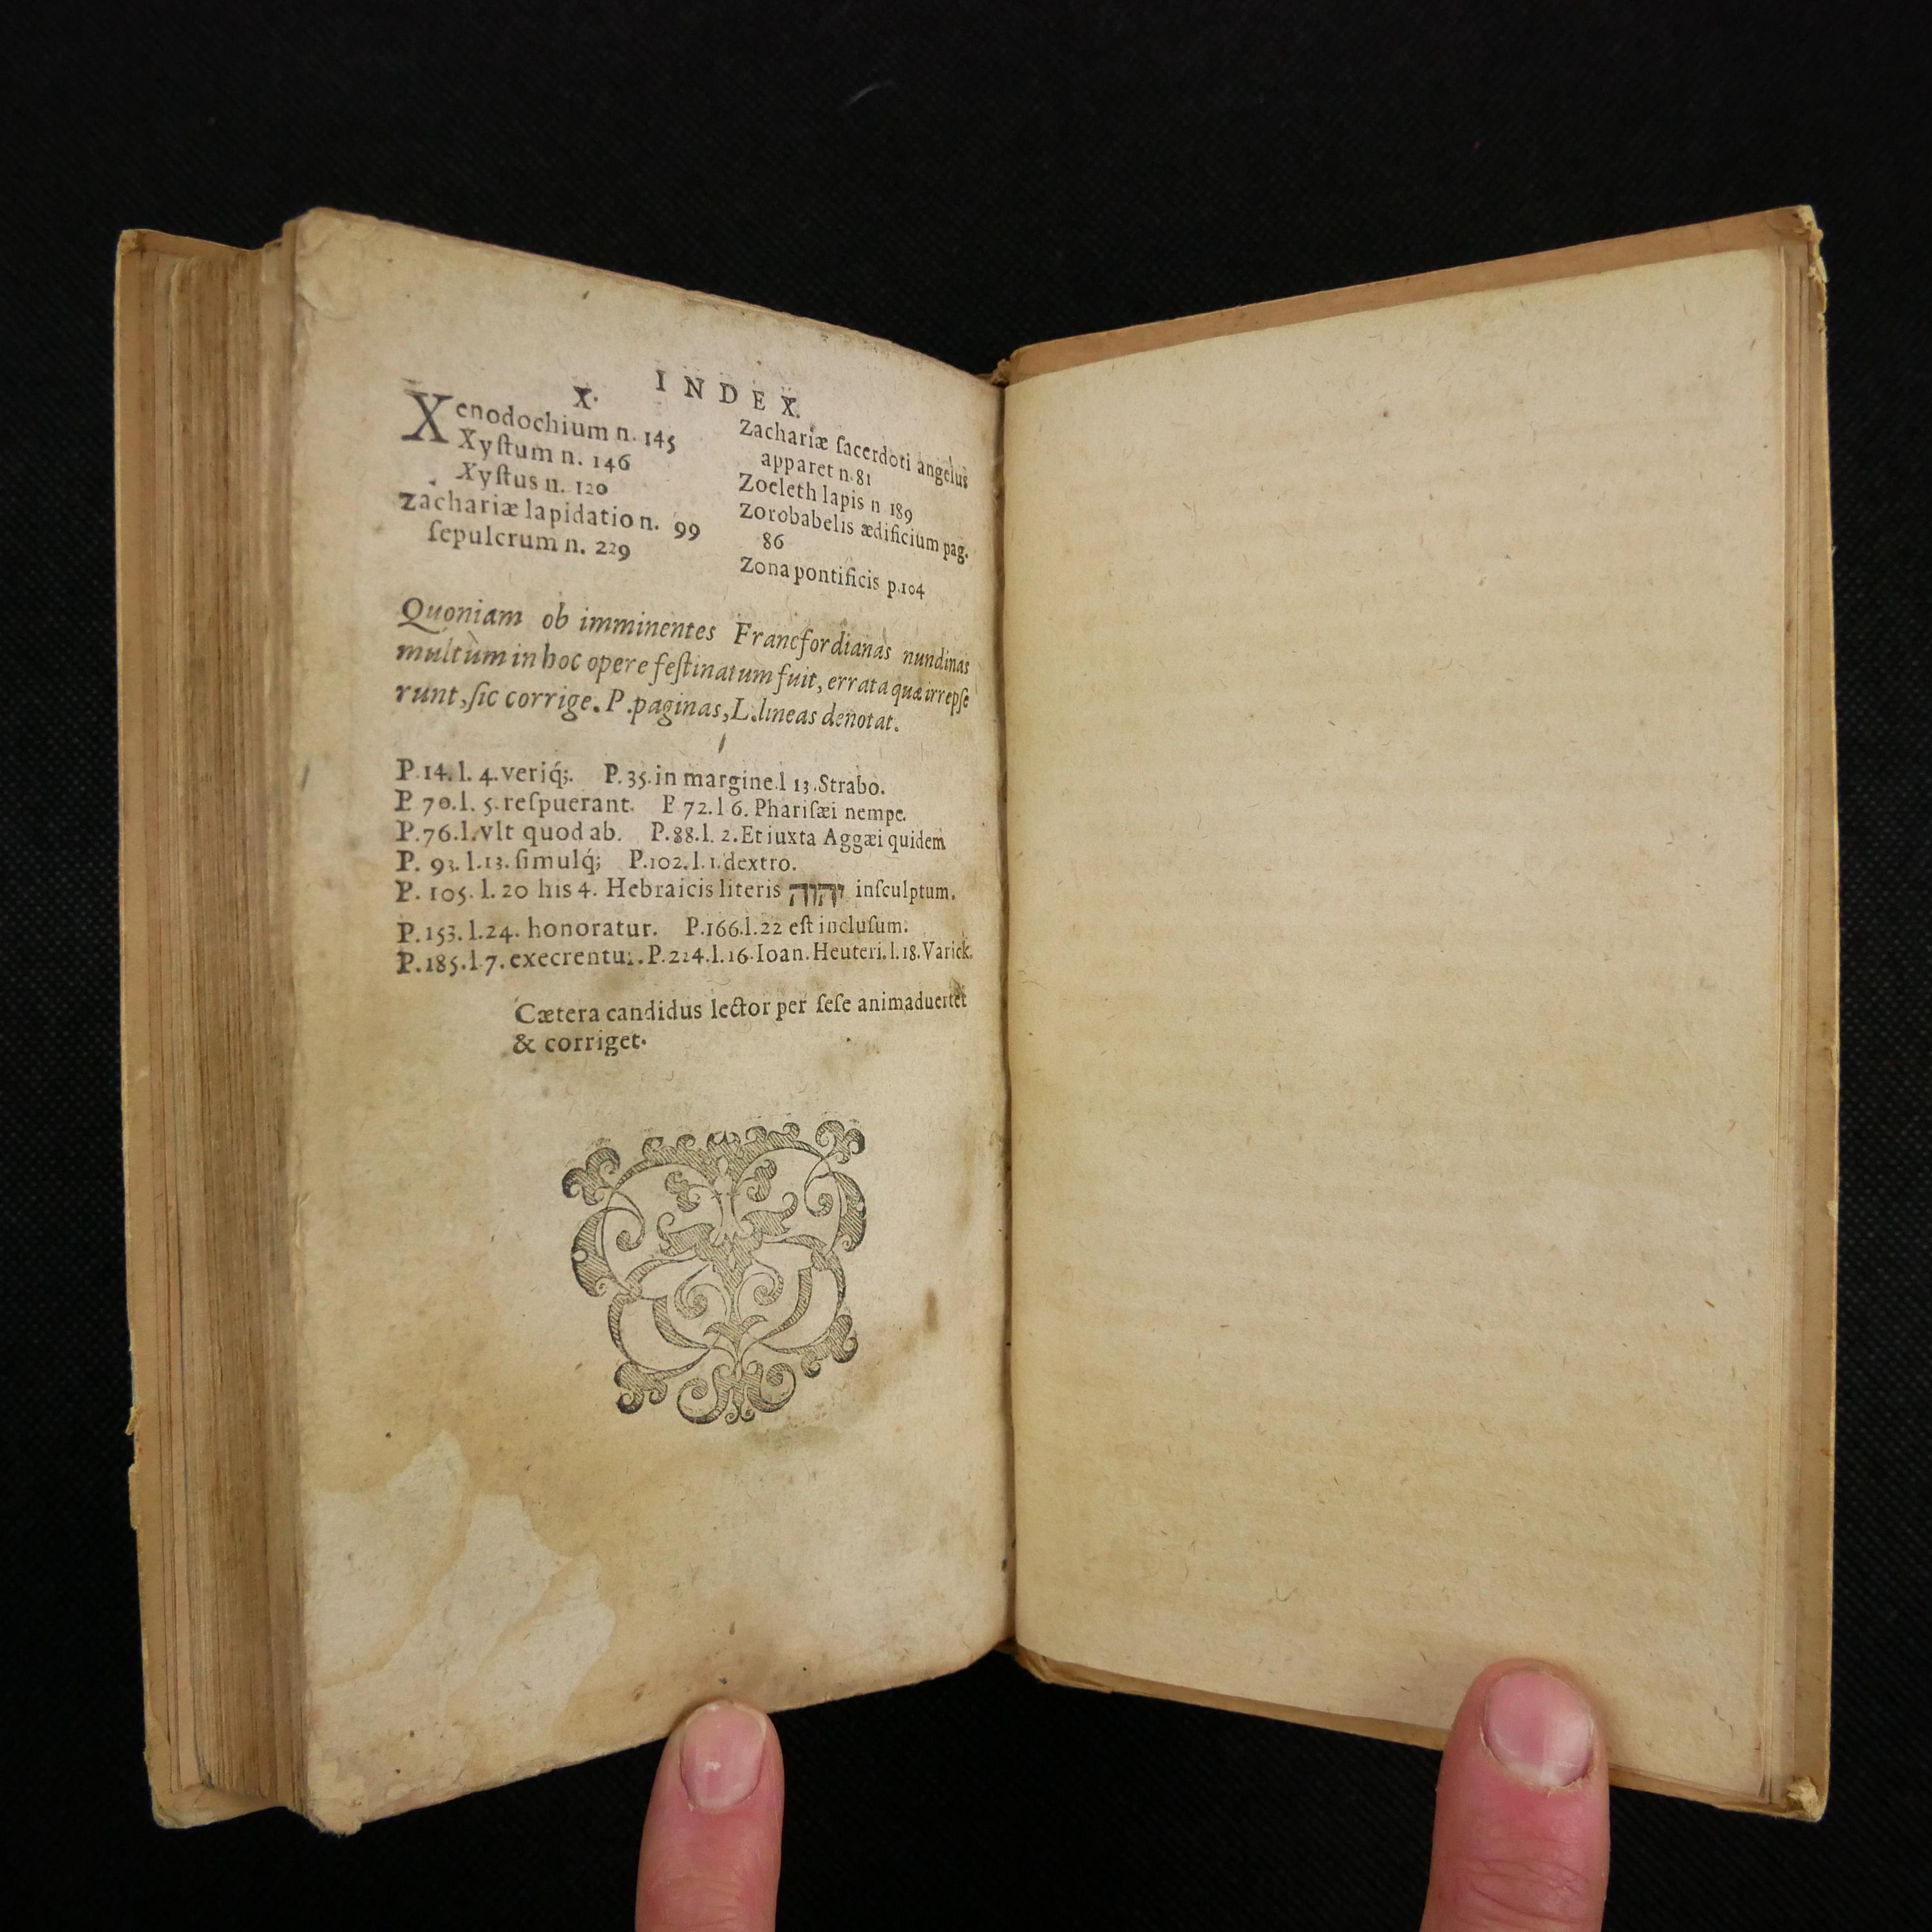 INDEX.
X.
Xenodochium n. 145
Xyſtum n. 146
Xyſtus n. 120
Zachariæ lapidatio n. 99
ſepulcrum n. 229
Zachariæ ſacerdoti angelus
apparet n. 81
Zoeleth lapis n 189
Zorobabelis ædificium pag.
86
Zona pontificis p. 104
Quoniam ob imminentes Francfordianas nundinas
multùm in hoc opere feſtinatum fuit, errata quæ irrepſe
runt, ſic corrige. P. paginas, L. lineas denotat.
P. 14. l. 4. veriq́;. P. 35. in margine. l 13. Strabo.
P 70. l. 5. reſpuerant. P 72. l 6. Phariſæi nempe.
P. 76. l. vlt quod ab. P. 88. l. 2. Et iuxta Aggæi quidem
P. 93. l. 13. ſimulq́; P. 102. l. 1. dextro.
P. 105. l. 20 his 4. Hebraicis literis יהוה inſculptum.
P. 153. l. 24. honoratur. P. 166. l. 22 eſt incluſum.
P. 185. l 7. execrentu. P. 224. l. 16. Ioan. Heuteri. l. 18. Varick.
Cætera candidus lector per ſeſe animaduertet
& corriget.